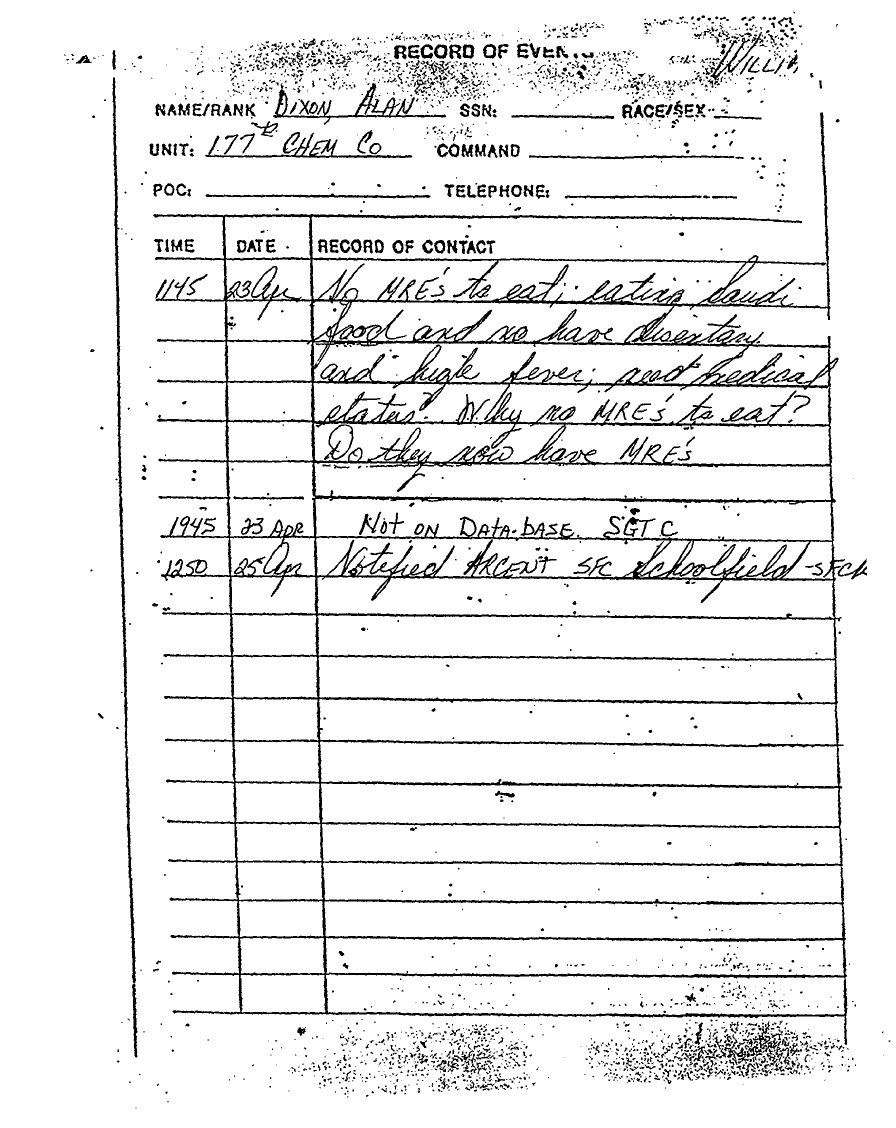 RECORD OF EVEN
WILLI
NAME/RANK DIXON, ALAN SSN: RACE/SEX
UNIT: 177th CHEM CO COMMAND
POC: TELEPHONE:
TIME DATE RECORD OF CONTACT
1145 23 Apr No MRE's to eat; eating Saudi
food and no have disentary
and high fever; need medical
status. Why no MRE's to eat?
Do they now have MRE's
1945 23 APR NOT ON DATA-BASE. SGT C
1250 25 Apr Notified ARCENT SFC Schoolfield -SFC